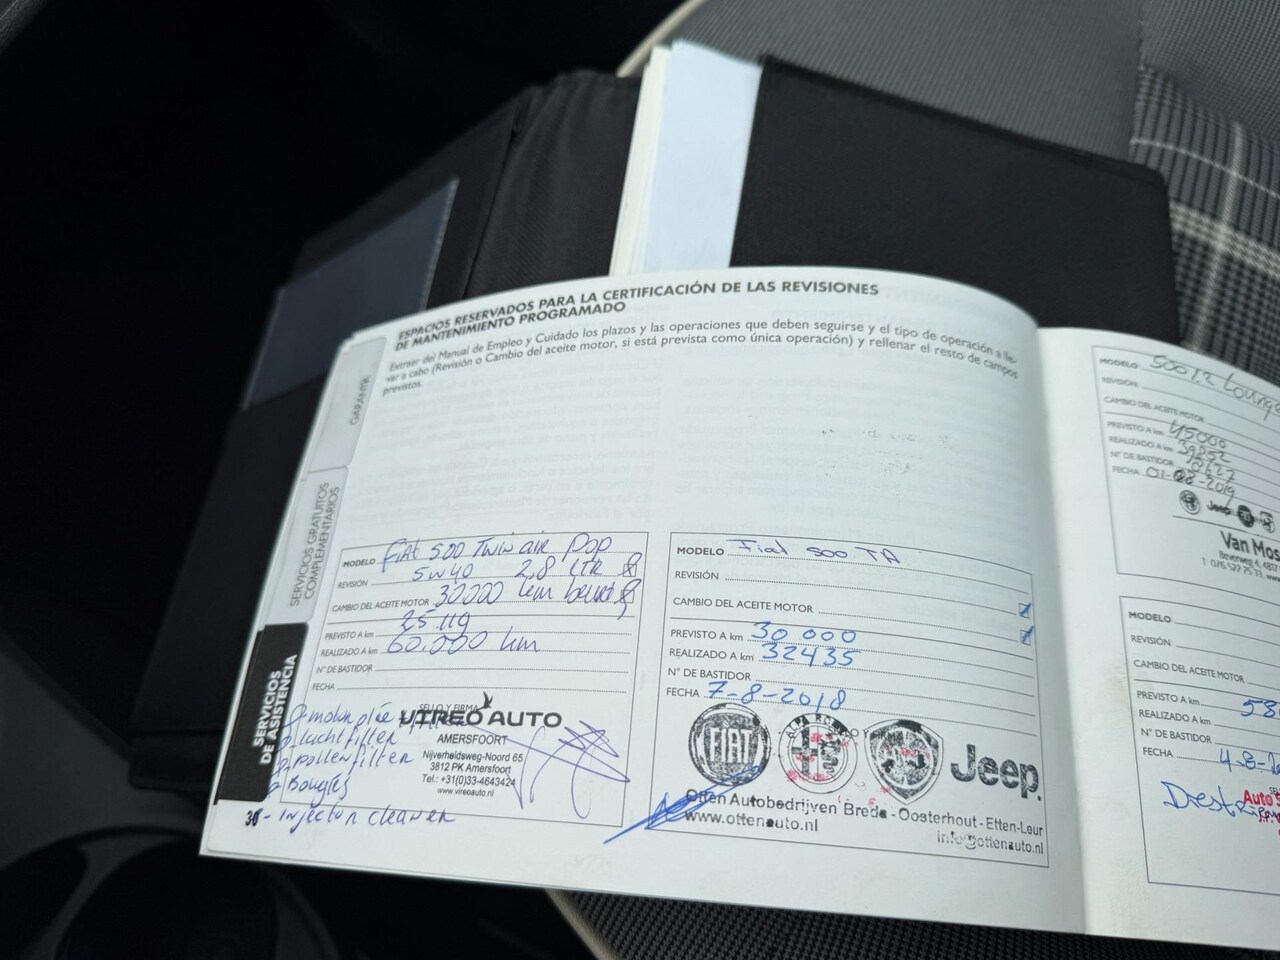 ESPACIOS RESERVADOS PARA LA CERTIFICACIÓN DE LAS REVISIONES
DE MANTENIMIENTO PROGRAMADO
Extraer del Manual de Empleo y Cuidado los plazos y las operaciones que deben seguirse y el tipo de operación a lle-
var a cabo (Revisión o Cambio del aceite motor, si está prevista como única operación) y rellenar el resto de campos
previstos.
GARANTÍA
SERVICIOS GRATUITOS
COMPLEMENTARIOS
SERVICIOS
DE ASISTENCIA
MODELO Fiat 500 Twin air Pop
5W40 2,8 LTR
REVISIÓN
CAMBIO DEL ACEITE MOTOR 30.000 km
25.119
PREVISTO A km
REALIZADO A km 60.000 km
N° DE BASTIDOR
FECHA
SELLO Y FIRMA
VIREO AUTO
AMERSFOORT
Nijverheidsweg-Noord 65
3812 PK Amersfoort
Tel.: +31(0)33-4643424
www.vireoauto.nl
luchtfilter
pollenfilter
Bougies
36 - injector cleaner
MODELO Fiat 500 TA
REVISIÓN
CAMBIO DEL ACEITE MOTOR
PREVISTO A km 30 000
REALIZADO A km 32435
N° DE BASTIDOR
FECHA 7-8-2018
FIAT
ALFA ROMEO
Jeep
Otten Autobedrijven Breda - Oosterhout - Etten-Leur
www.ottenauto.nl
info@ottenauto.nl
MODELO 500 1.2 Lounge
REVISIÓN
CAMBIO DEL ACEITE MOTOR
PREVISTO A km 45000
REALIZADO A km 39852
N° DE BASTIDOR
FECHA 01-08-2019
Jeep
Van Mos
MODELO
REVISIÓN
CAMBIO DEL ACEITE MOTOR
PREVISTO A km
REALIZADO A km
N° DE BASTIDOR
FECHA 4-8-
Auto